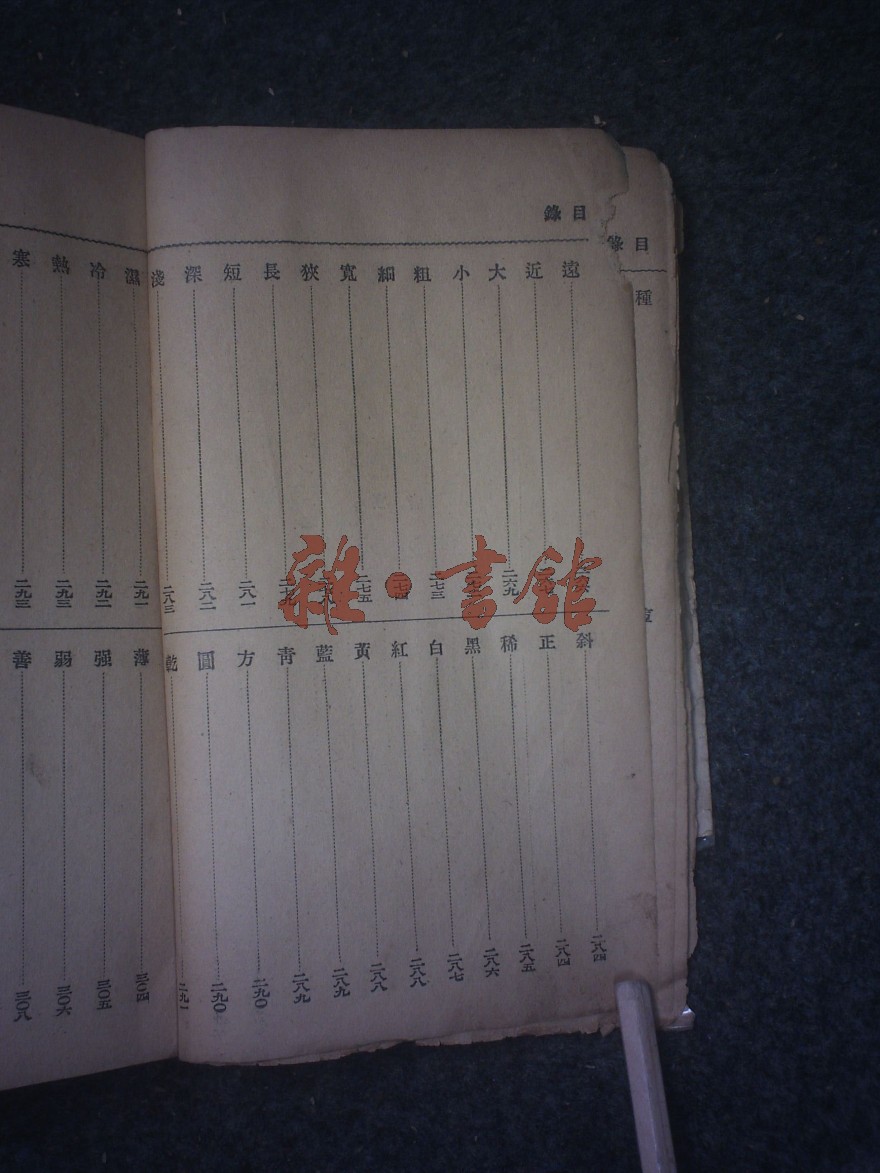 目錄
種
目錄
遠
近
大 二六九
小
粗 二七三
細 二七四
寬 二七五
狹
長
短 二八一
深 二八二
淺 二八三
斜 二八四
正 二八四
稀 二八五
黑 二八六
白 二八七
紅 二八八
黃 二八八
藍 二八九
青 二八九
方 二九〇
圓 二九〇
乾 二九一
濕 二九一
冷 二九二
熱 二九三
寒 二九三
薄 三〇四
强 三〇五
弱 三〇六
善 三〇八
雜·書館